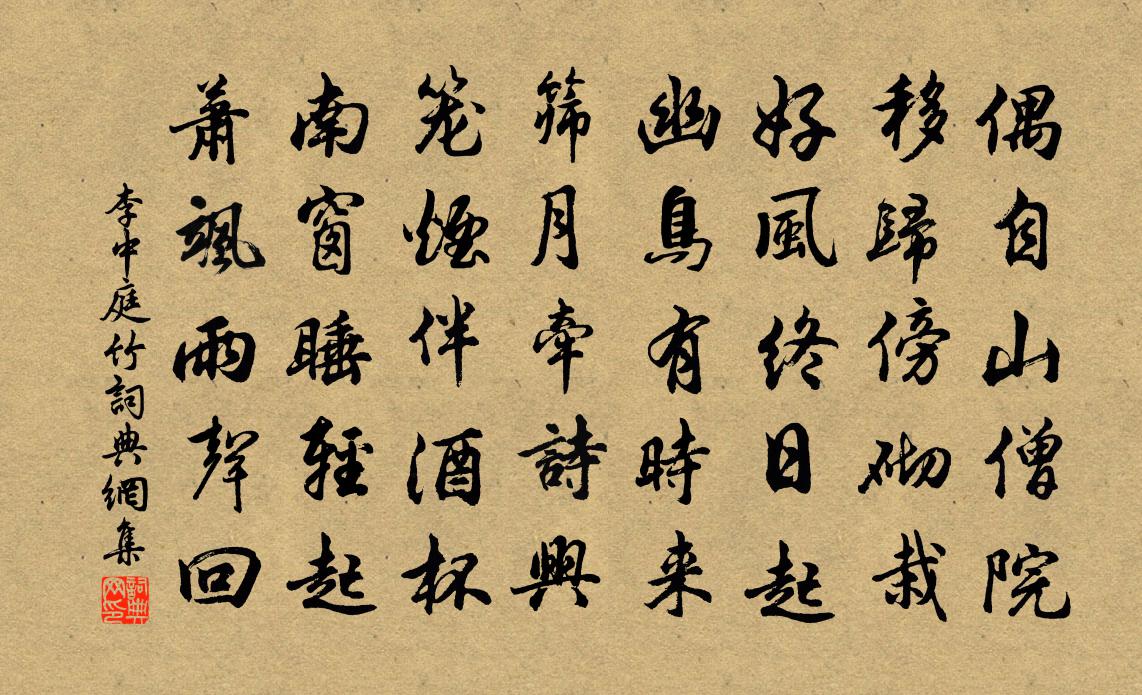 偶自山僧院
移歸傍砌栽
好風終日起
幽鳥有時来
篩月牽詩興
笼煙伴酒杯
南窗睡輕起
蕭颯雨聲回
李中庭竹詞典網集
詞典网印